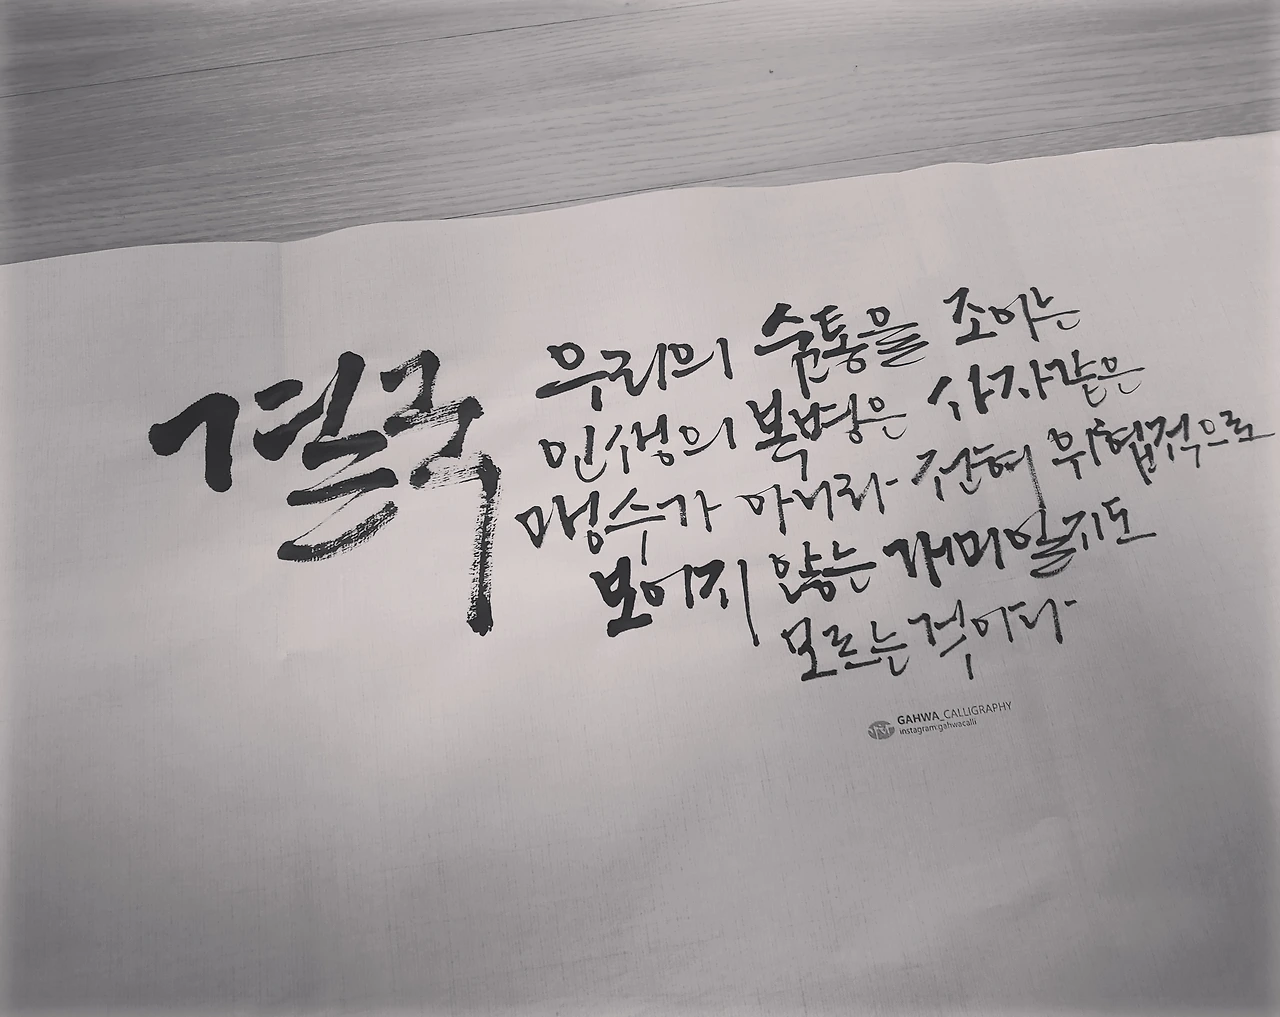 결국
우리의 숨통을 조이는
인생의 복병은 사자같은
맹수가 아니라 전혀 위협적으로
보이지 않는 개미일지도
모르는 것이다
GAHWA_CALLIGRAPHY
instagram:gahwacalli